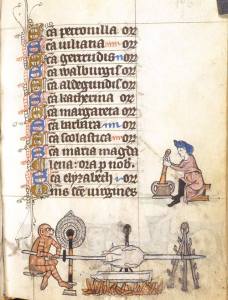 ca petronilla or
ca iuliana or
ca gertrudis or
ca walburgis or
ca aldegundis or
ca katherina or
ca margareta or
ca barbara or
ca scolastica or
ca maria magda
lena: ora p nob
ca elyzabech or
mis sce virgines